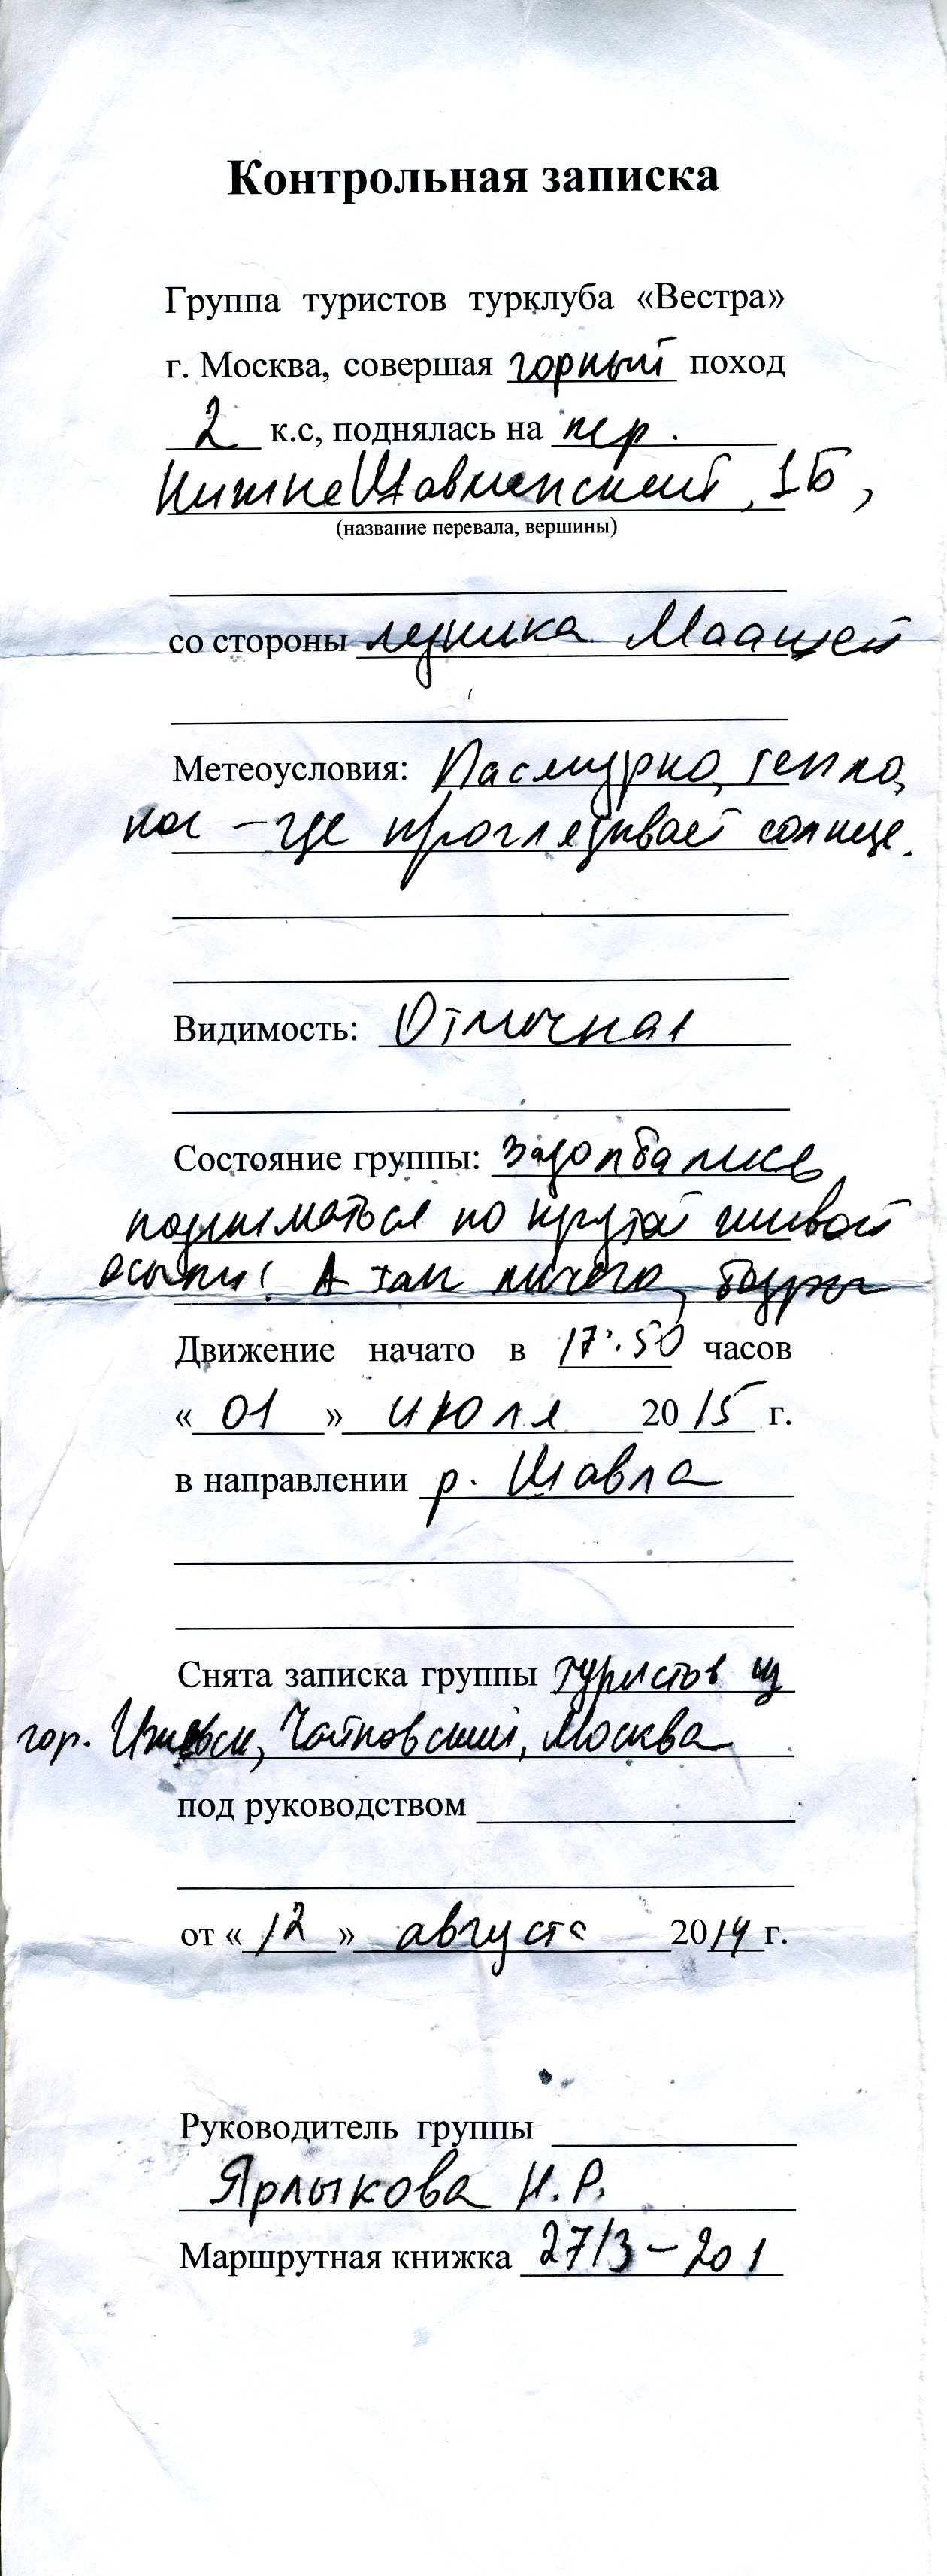 Контрольная записка
Группа туристов турклуба «Вестра»
г. Москва, совершая горный поход
2 к.с, поднялась на пер.
НижнеШавлинский, 1Б,
(название перевала, вершины)
со стороны ледника Маашей
Метеоусловия: Пасмурно, тепло,
кое-где проглядывает солнце.
Видимость: Отличная
Состояние группы: Задолбались
подниматься по крутой живой
осыпи! А так ничего, бодры
Движение начато в 17:50 часов
«01» июля 2015 г.
в направлении р. Шавла
Снята записка группы туристов из
гор. Ижевск, Чайковский, Москва
под руководством
от «12» августа 2014 г.
Руководитель группы
Ярлыкова Н.Р.
Маршрутная книжка 27/3-201